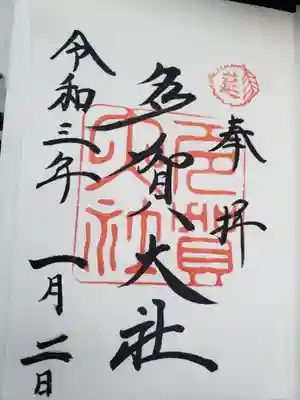 奉拝
多賀大社
多賀
大社
令和三年
一月二日